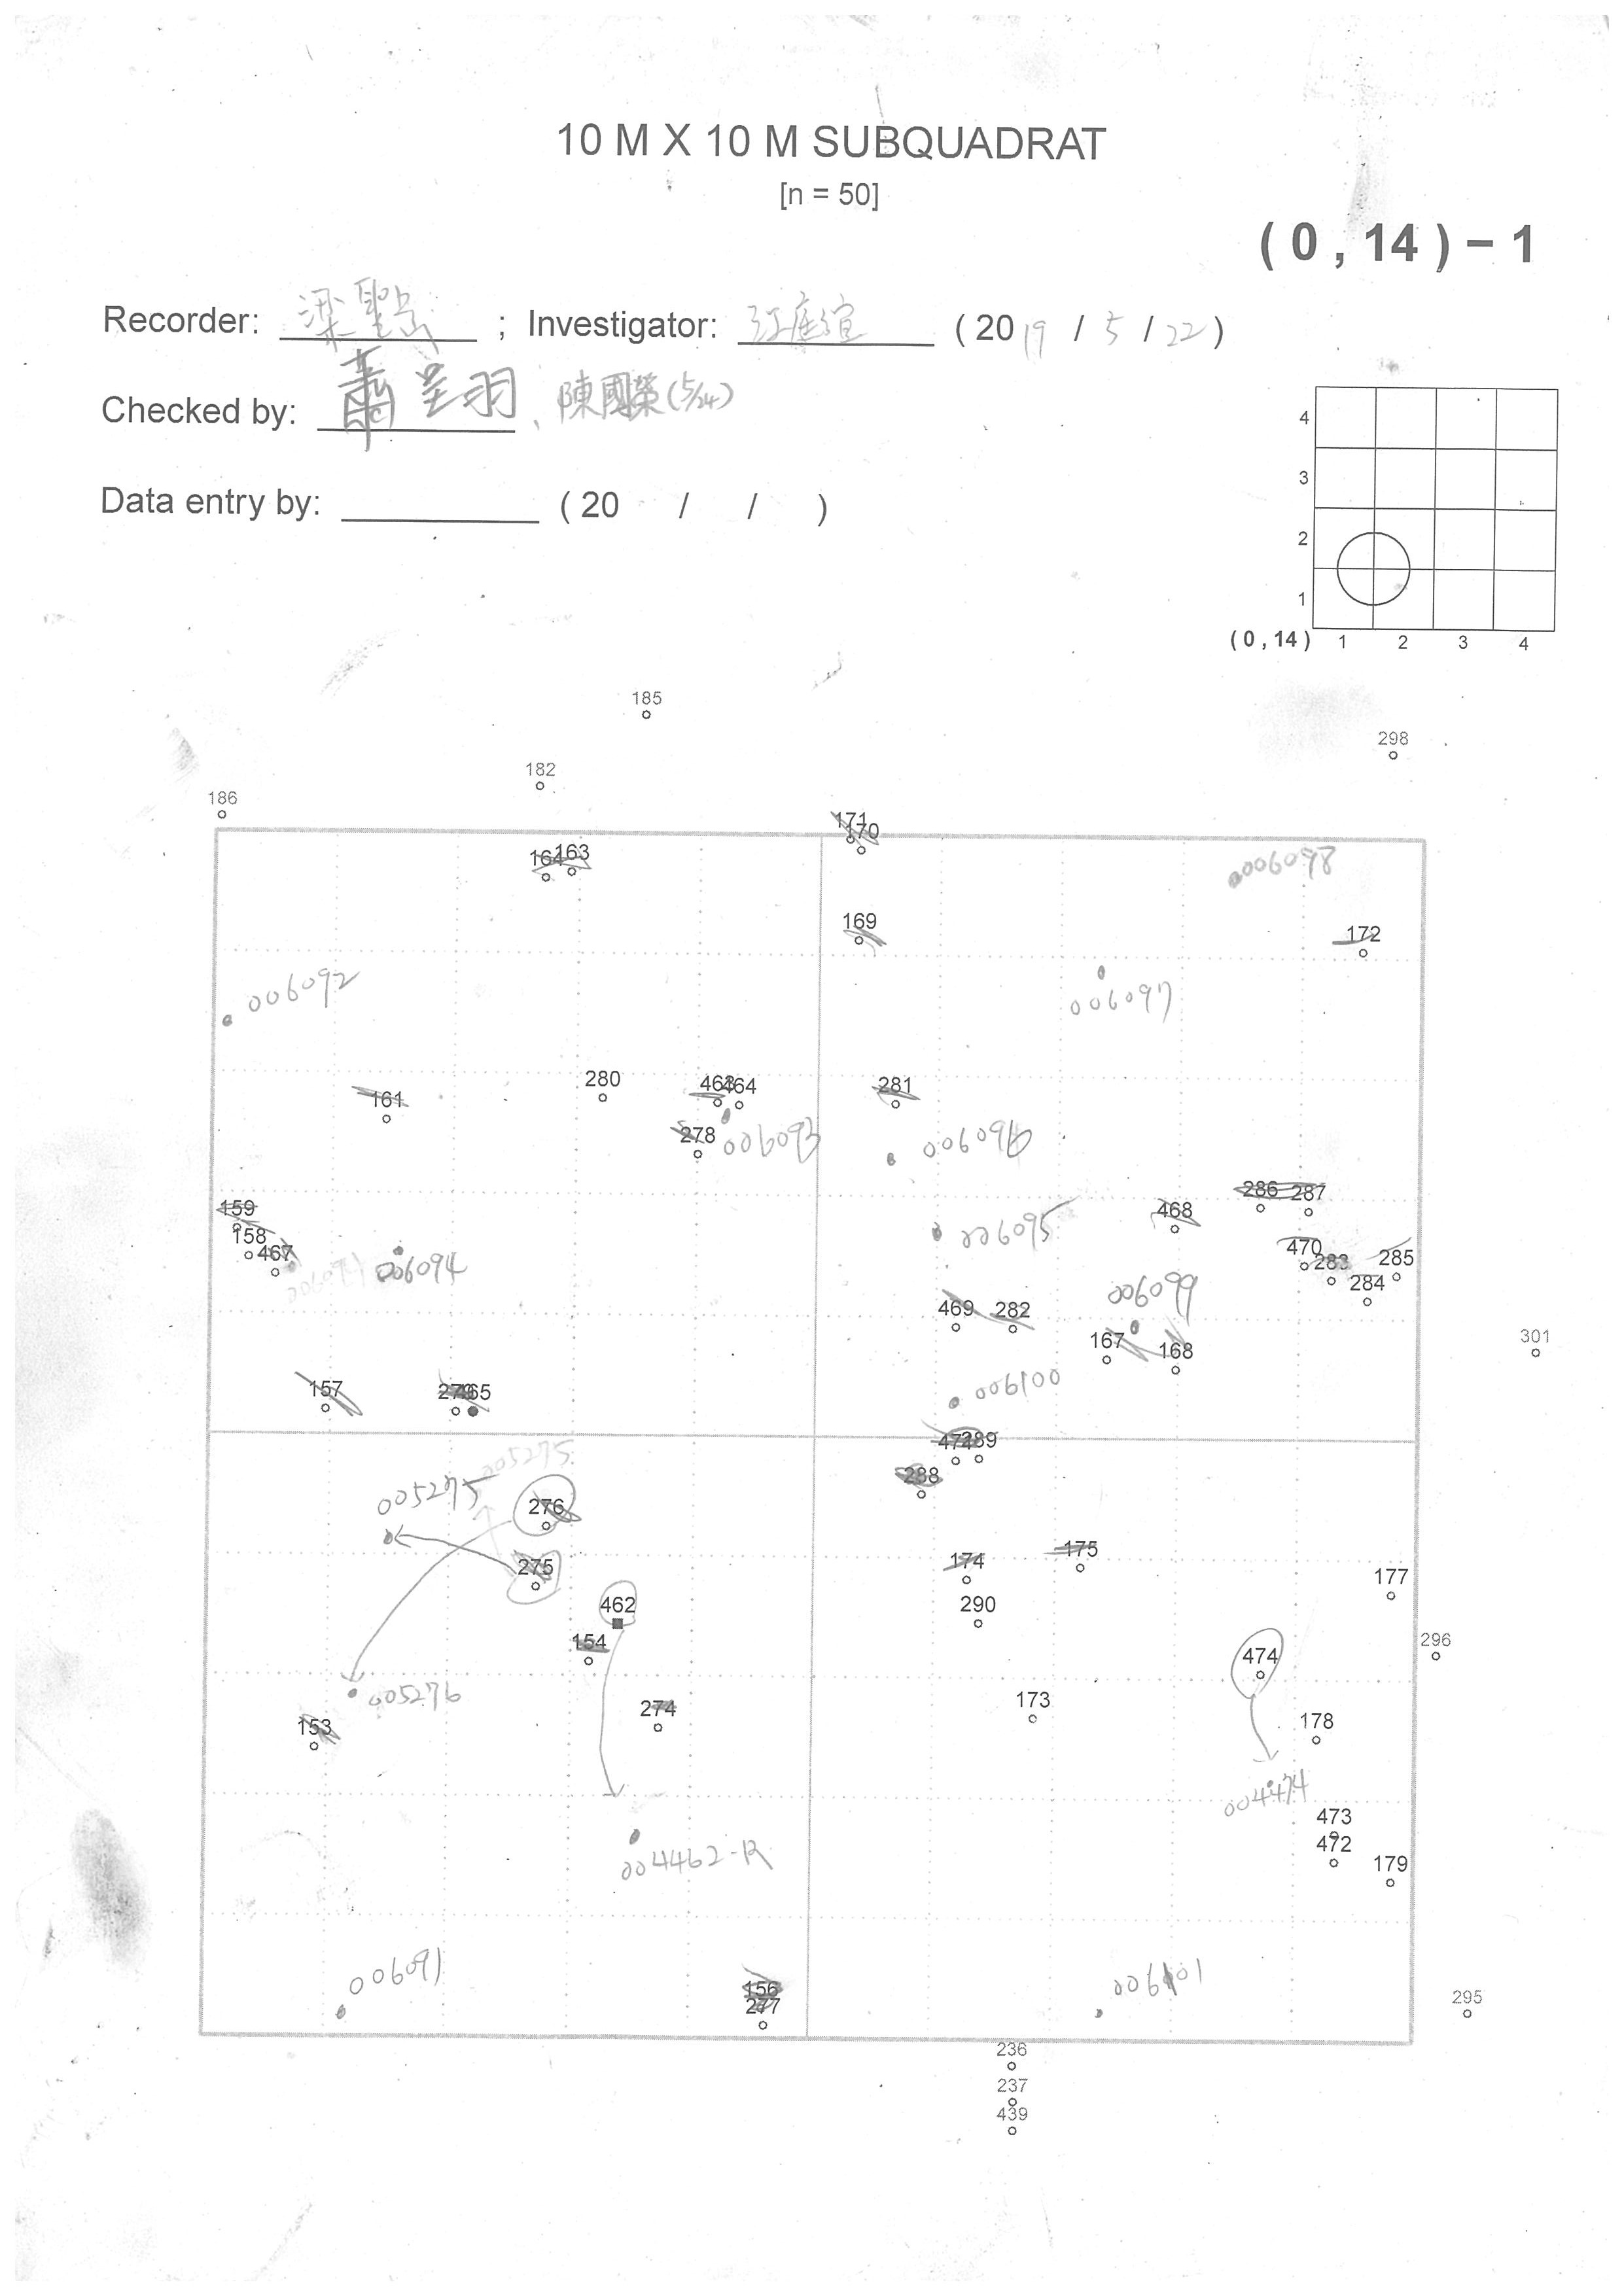 10 M X 10 M SUBQUADRAT
[n = 50]
( 0 , 14 ) – 1
Recorder: 梁聖岳 ; Investigator: 江庭瑄 ( 2019 / 5 / 22 )
Checked by: 蕭呈羽 、陳國榮(5/24)
Data entry by: ( 20 / / )
4
3
2
1
( 0 , 14 ) 1 2 3 4
185
298
182
186
171
170
164 163
006098
169
172
006092
006097
161
280
463 464
281
278
006093
006096
159
158
467
006094
006095
468
286 287
470 283 285
284
006099
469 282
167 168
301
157
279 465
006100
471 289
288
005275
005275
276
275
174
175
177
462
290
154
296
474
005276
173
153
274
178
004474
473
472
179
004462-R
006091
156
277
006101
295
236
237
439